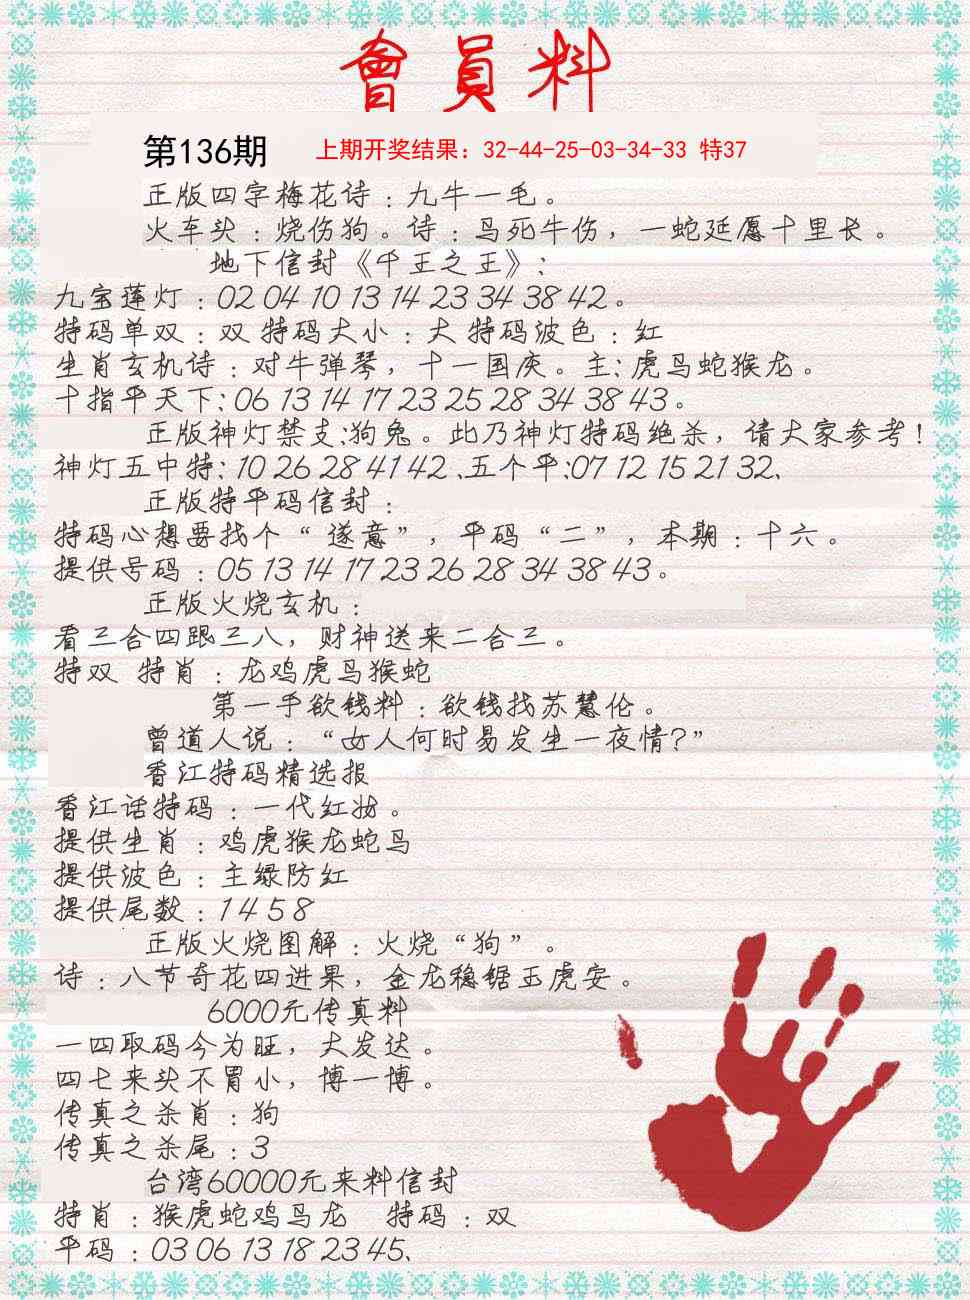 會員料
第136期 上期开奖结果：32-44-25-03-34-33 特37
正版四字梅花诗：九牛一毛。
火车头：烧伤狗。诗：鸟死牛伤，一蛇延愿十里长。
地下信封《千王之王》：
九宝莲灯：02 04 10 13 14 23 34 38 42。
特码单双：双 特码大小：大 特码波色：红
生肖玄机诗：对牛弹琴，十一国庆。主：虎马蛇猴龙。
十指平天下：06 13 14 17 23 25 28 34 38 43。
正版神灯禁支：狗兔。此乃神灯特码绝杀，请大家参考！
神灯五中特：10 26 28 41 42、五个平：07 12 15 21 32、
正版特平码信封：
特码心想要找个“遂意”，平码“二”，本期：十六。
提供号码：05 13 14 17 23 26 28 34 38 43。
正版火烧玄机：
看三合四跟三八，财神送来二合三。
特双 特肖：龙鸡虎马猴蛇
第一手欲钱料：欲钱找苏慧伦。
曾道人说：“女人何时易发生一夜情？”
香江特码精选报
香江话特码：一代红妆。
提供生肖：鸡虎猴龙蛇马
提供波色：主绿防红
提供尾数：1 4 5 8
正版火烧图解：火烧“狗”。
诗：八节奇花四进果，金龙稳锯玉虎安。
6000元传真料
一四取码今为旺，大发达。
四七来头不冒小，博一博。
传真之杀肖：狗
传真之杀尾：3
台湾60000元来料信封
特肖：猴虎蛇鸡马龙 特码：双
平码：03 06 13 18 23 45、